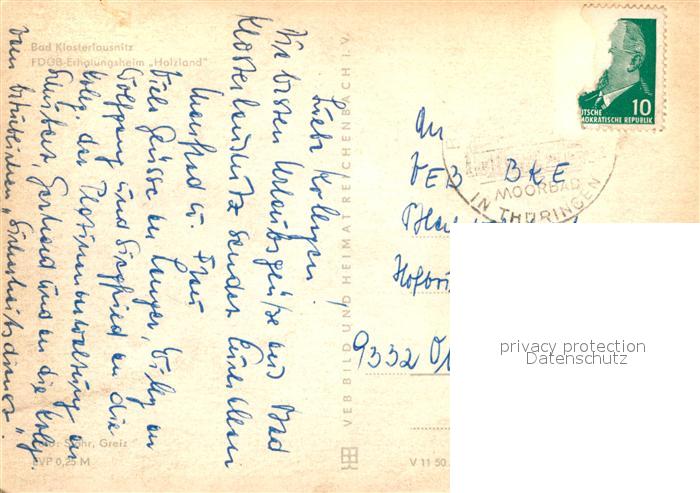 Bad Klosterlausnitz
FDGB-Erholungsheim „Holzland"
Liebe Kollegen!
Die besten Urlaubsgrüße aus Bad
Klosterlausnitz sendet Euch allen
Manfred u. Frau
Viele Grüße an Langer, Willy an
Wolfgang und Siegfried an die
Kolleg. der Plattenverwaltung an
Gerhard und an die Kolleg.
vom betrieblichen „Sicherheitsdienst"
Foto: Stöhr, Greiz
EVP 0,25 M
VEB BILD UND HEIMAT REICHENBACH I. V.
V 11 50
10
DEUTSCHE
DEMOKRATISCHE REPUBLIK
MOORBAD
IN THÜRINGEN
An
VEB BKE
9332
privacy protection
Datenschutz